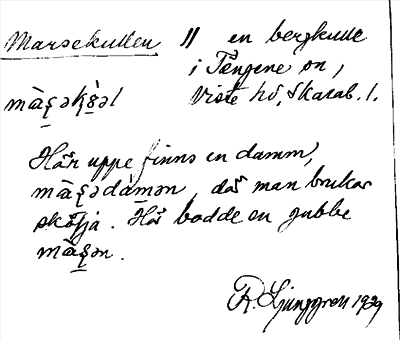 Marsekullen || en bergkulle
i Tengene sn,
màʂəkɣ̀əl Viste hd, Skarab. l.
Här uppe finns en damm,
màʂədàmən, där man brukar
skölja. Här bodde en gubbe
màʂən.
R. Ljunggren 1929